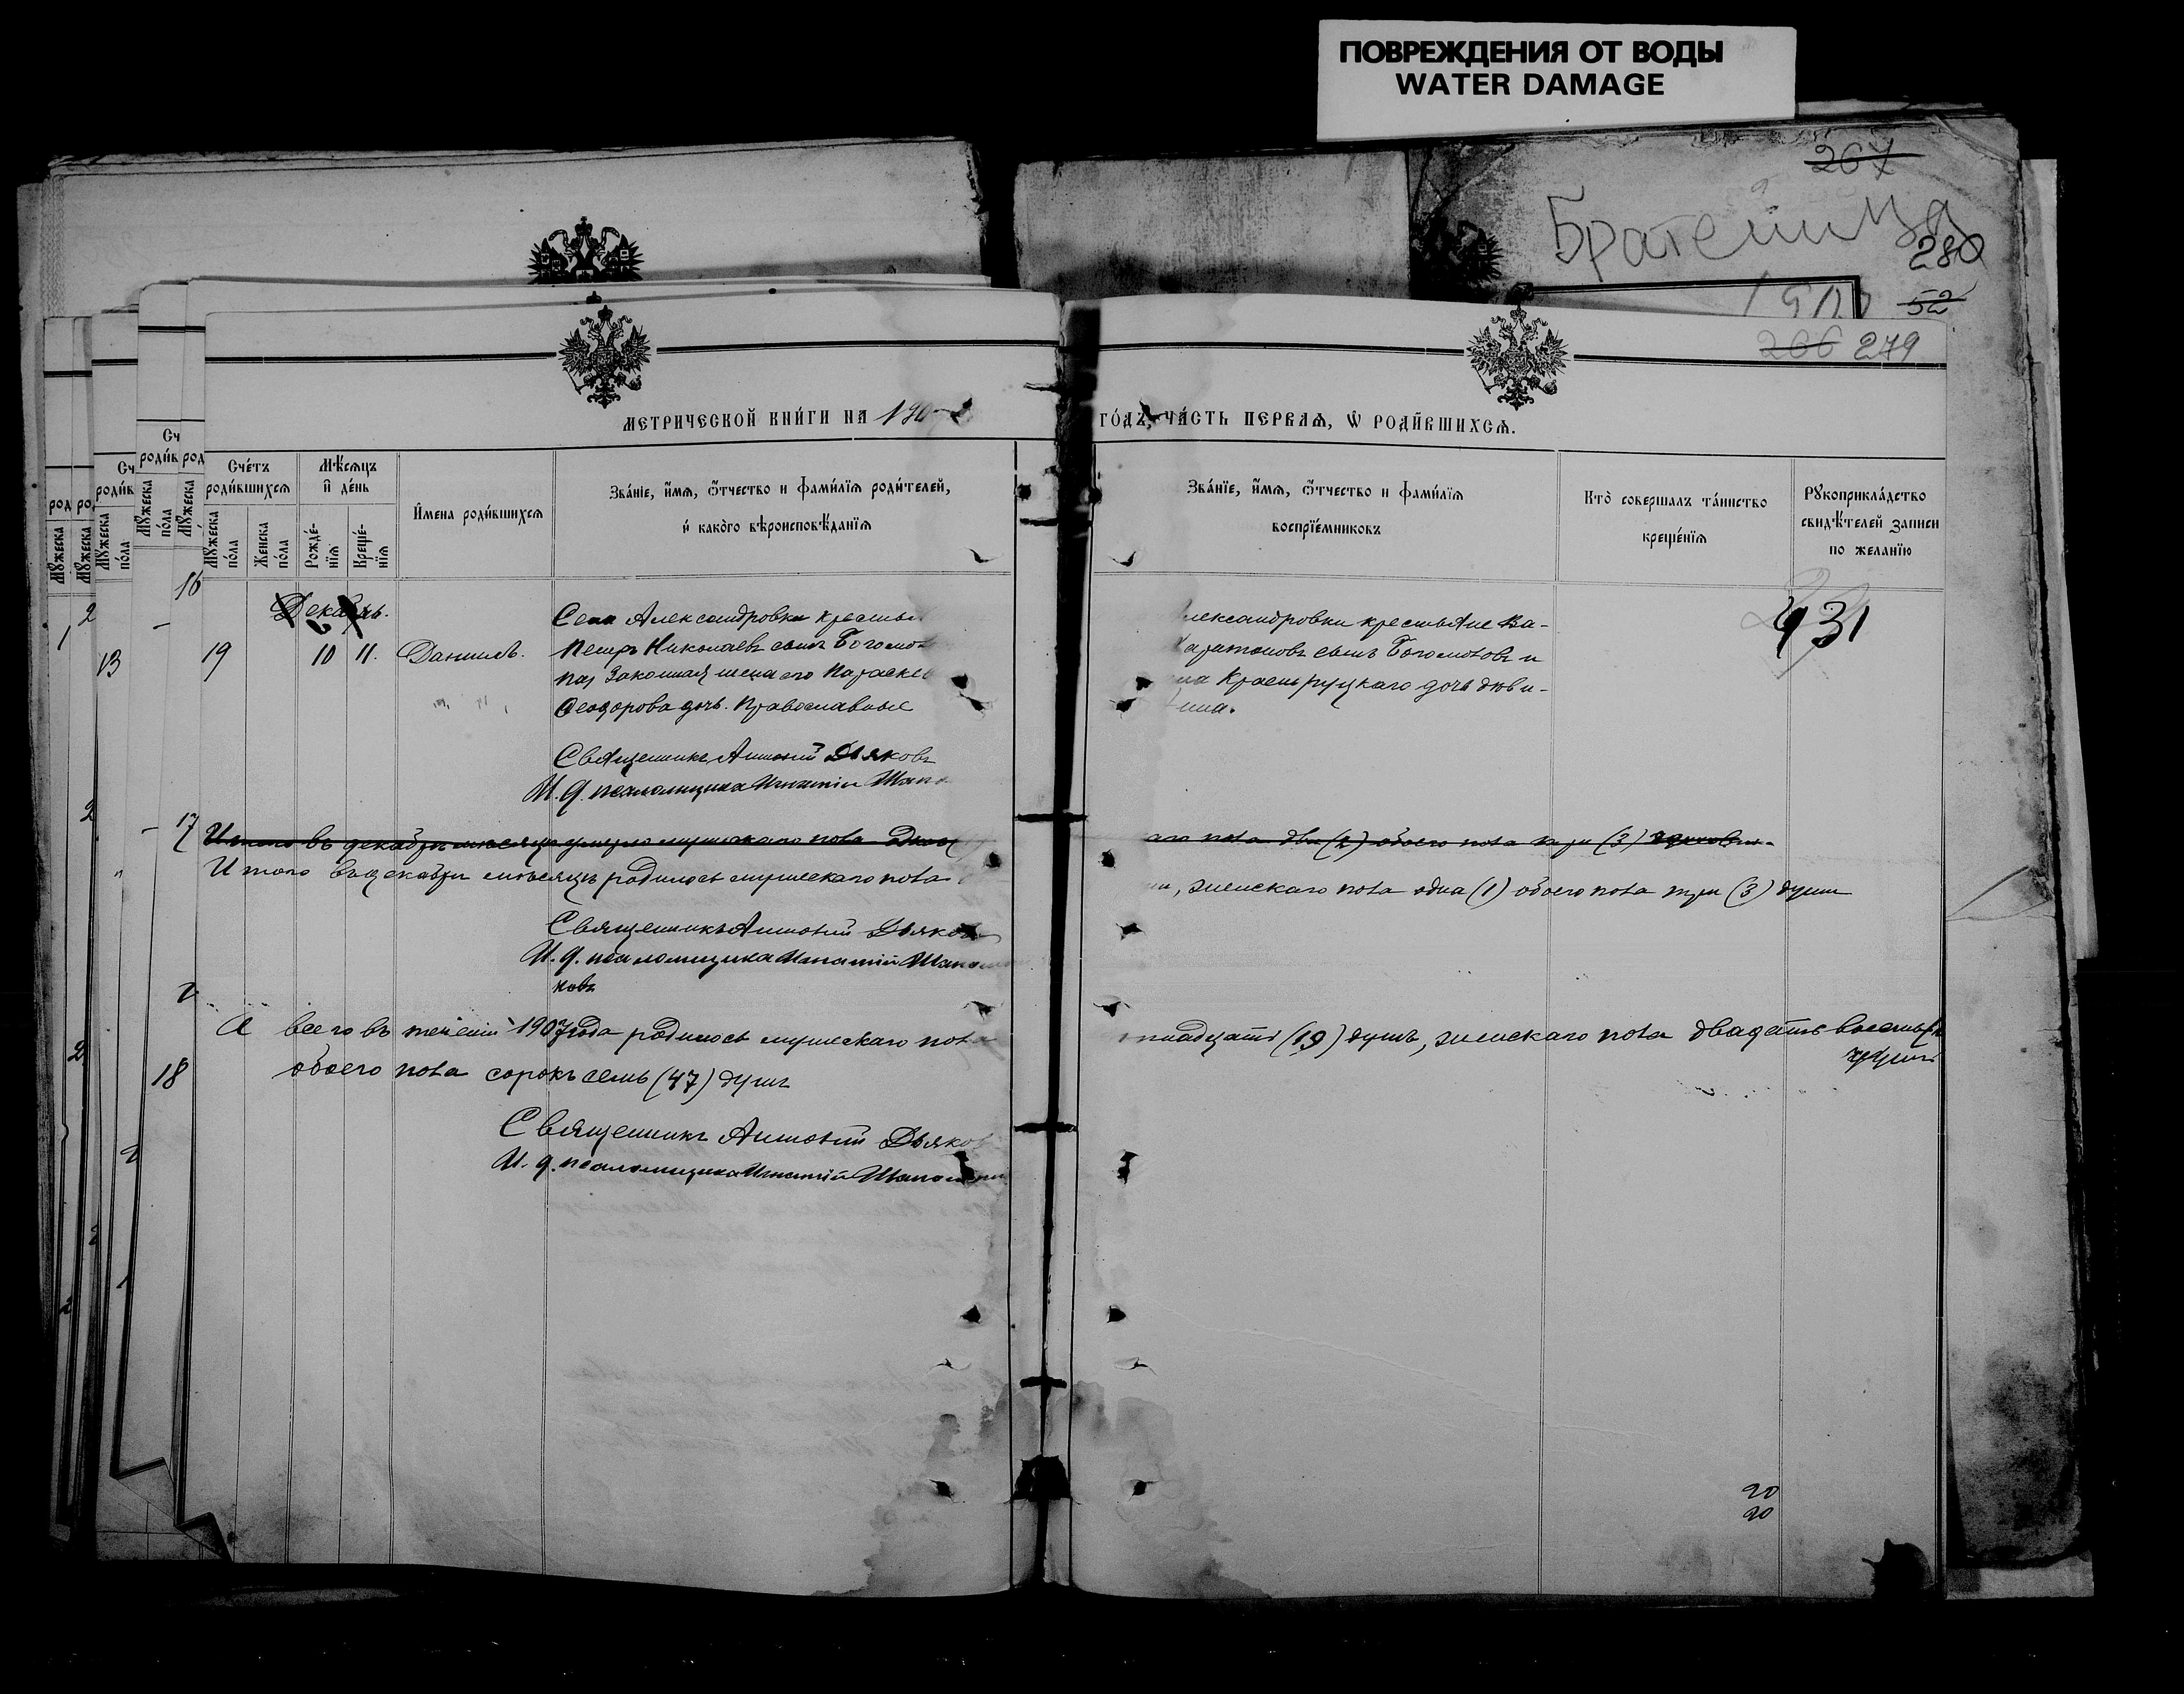 ПОВРЕЖДЕНИЯ ОТ ВОДЫ
WATER DAMAGE
267
Братеница
280
52
266 279
МЕТРИЧЕСКОЙ КНИ́ГИ НА 190
ГО́ДЪ, ЧА́СТЬ ПЕРВАѦ, Ѡ РОДИ́ВШИХСѦ.
Сче́тъ роди́вшихсѧ
Мѣ́сѧцъ и҆ де́нь
И҆мена роди́вшихсѧ
Зва́нїе, и҆́мѧ, ѻ҆́тчество и фами́лїѧ роди́телей,
и҆ како́го вѣроисповѣ́данїѧ
Зва́нїе, и҆́мѧ, ѻ҆́тчество и фами́лїѧ
воспрїе́мниковъ
Кто̀ соверша́лъ та́инство
креще́нїѧ
Рꙋкоприкла́дство
свидѣ́телей записи
по жела́нїю
Мꙋ́жеска по́ла
Же́нска по́ла
Рожде́нїѧ
Креще́нїѧ
Декабрь.
19 10 11. Даниилъ.
Села Александровки крестья
Петръ Николаевъ сынъ Богомо
законная жена его Параске
Феодорова дочь. Православные
лександровки крестьяне
Харитоновъ сынъ Богомоловъ и
дочь
931
Священникъ Антоній Дьяковъ
И. д. псаломщика Игнатій Шапо
Итого въ декабрѣ мѣсяцѣ умерло мужескаго пола
аго пола два (2) обоего пола три (3)
Итого въ декабрѣ мѣсяцѣ родилось мужескаго пола
, женскаго пола одна (1) обоего пола три (3) души
Священникъ Антоній Дьяковъ
И. д. псаломщика Игнатій Шапош
ковъ
А всего въ теченіи 1907 года родилось мужескаго пола
надцать (19) душъ, женскаго пола двадцать восемь
душъ
обоего пола сорокъ семь (47) душъ
Священникъ Антоній Дьяков
И. д. псаломщика Игнатій Шапошни
20
20
16
17
18
13